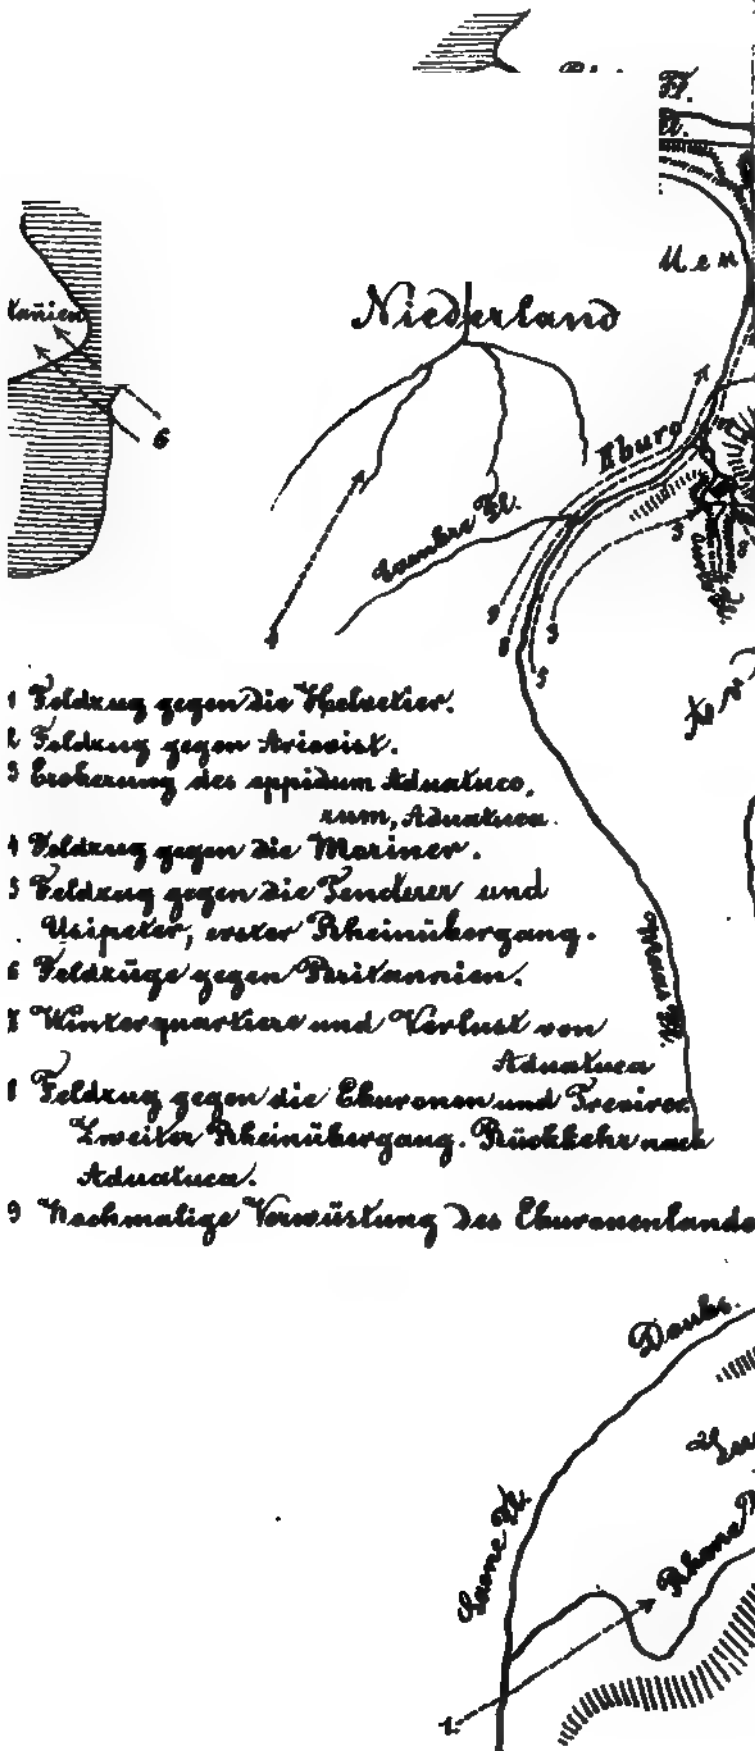 Fl.
Fl.
Men
tañien
Niederland
6
Eburo
Sambre Fl.
3
9
8
3
5
4
1 Feldzug gegen die Helvetier.
2 Feldzug gegen Ariovist.
3 Eroberung des oppidum Aduatuco,
rum, Aduatuca.
4 Feldzug gegen die Moriner.
5 Feldzug gegen die Tenderer und
Usipeter, erster Rheinübergang.
6 Feldzüge gegen Britannien.
7 Winterquartiere und Verlust von
Aduatuca
8 Feldzug gegen die Eburonen und Trevirer.
Zweiter Rheinübergang. Rückkehr nach
Aduatuca.
9 Nochmalige Verwüstung des Eburonenlande
Maas Fl.
Doubs.
Saone Fl.
Rhone
1.